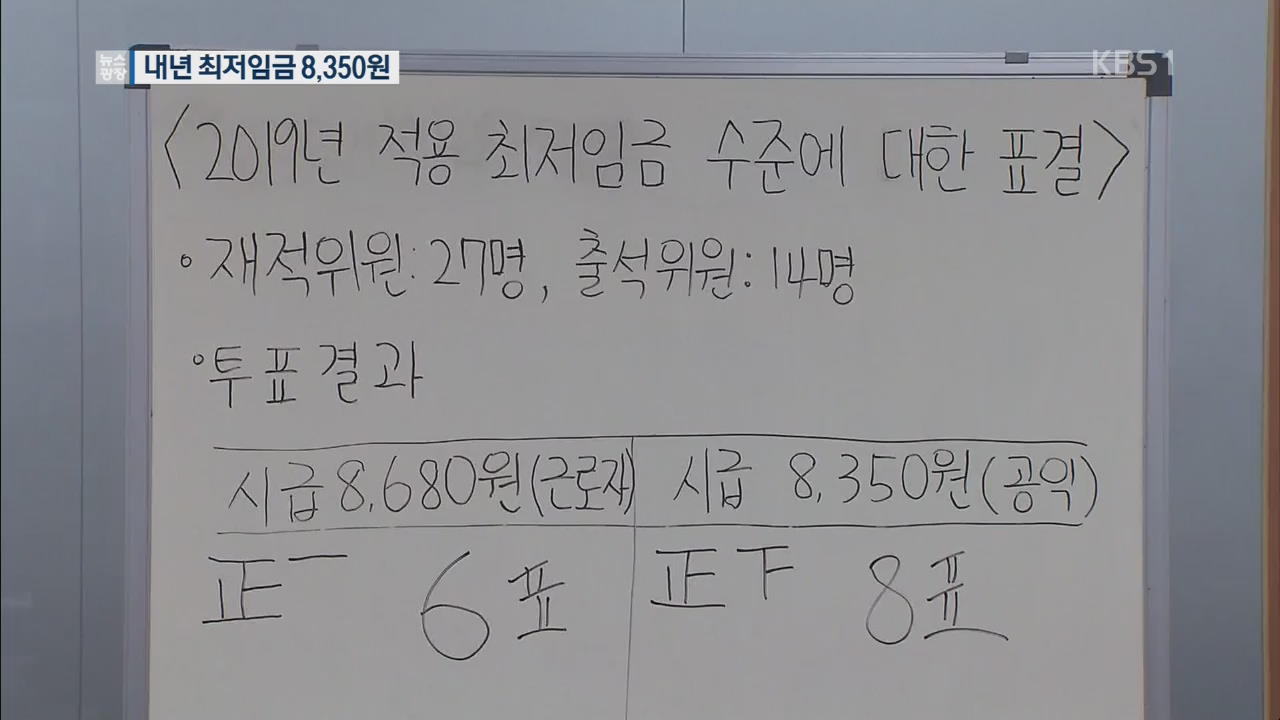 뉴스광장 내년 최저임금 8,350원
KBS1
<2019년 적용 최저임금 수준에 대한 표결>
• 재적위원: 27명, 출석위원: 14명
• 투표결과
시급 8,680원(근로자) 시급 8,350원(공익)
正一 6표 正下 8표